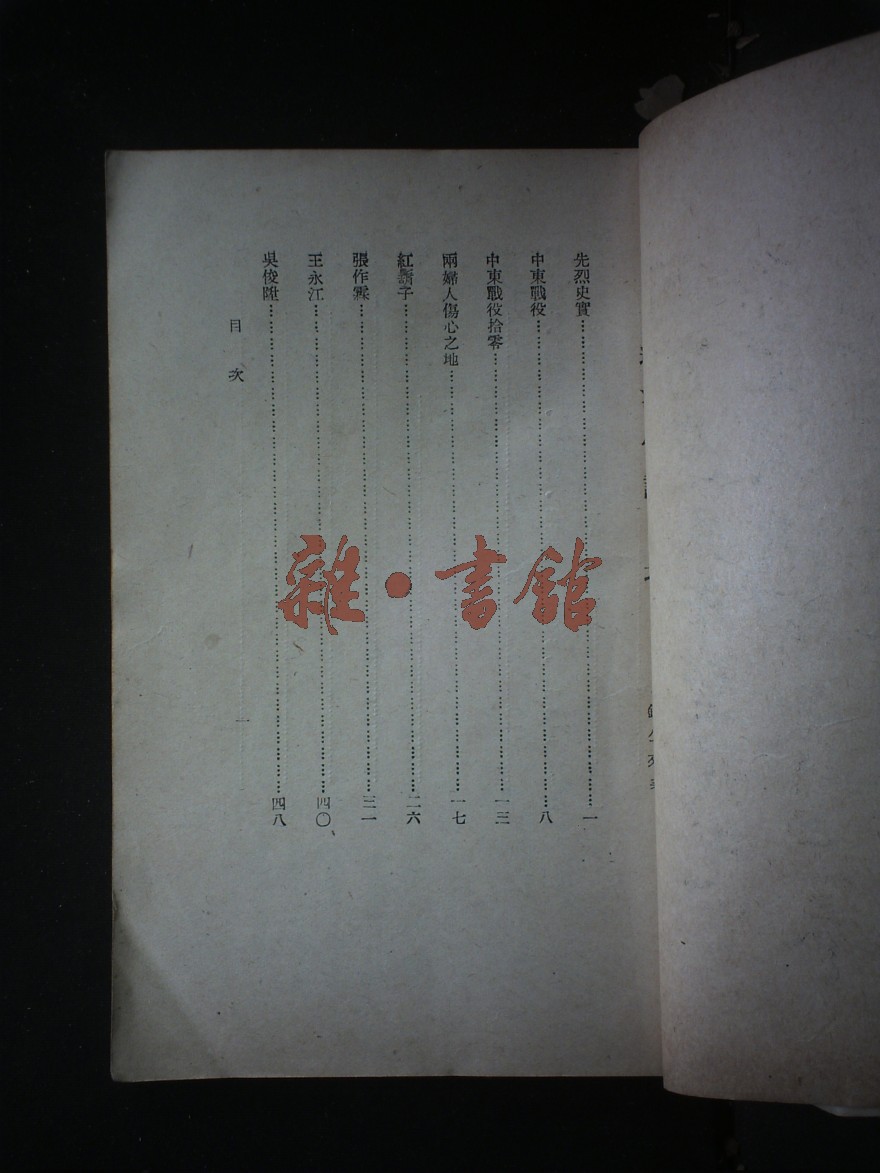 先烈史實⋯⋯一
中東戰役⋯⋯八
中東戰役拾零⋯⋯一三
兩婦人傷心之地⋯⋯一七
紅鬍子⋯⋯二六
張作霖⋯⋯三一
王永江⋯⋯四〇
吳俊陞⋯⋯四八
目次
一
雜·書館